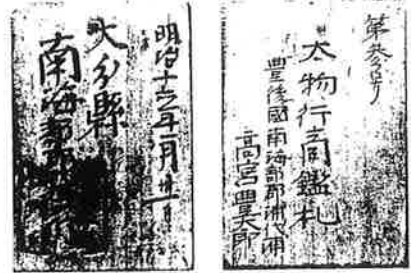 第参号
太物行商鑑札
豊後國南海部郡浦代浦
高宮豊太郎
明治十三年一月廿一日
大分縣
南海部郡